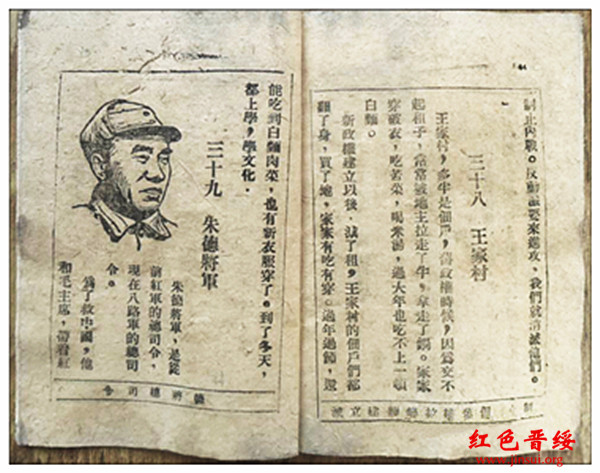 制止內戰。反動派要來進攻，我們就消滅他們。
三十八 王家村
王家村，多半是佃戶，舊政權時候，因爲交不
起租子，常常被地主拉走了牛，拿走了鍋。家家
穿破衣，吃苦菜，喝米湯，過大年也吃不上一頓
白麵。
新政權建立以後，減了租，王家村的佃戶們都
翻了身，買了地，家家有吃有穿。過年過節，還
能吃到白麵肉菜，也有新衣服穿了。到了冬天，
都上學，學文化．
三十九 朱德將軍
朱德將軍，是從
前紅軍的總司令，
現在八路軍的總司
令。
爲了救中國，他
和毛主席，帶着紅
將總司令
红色晋绥